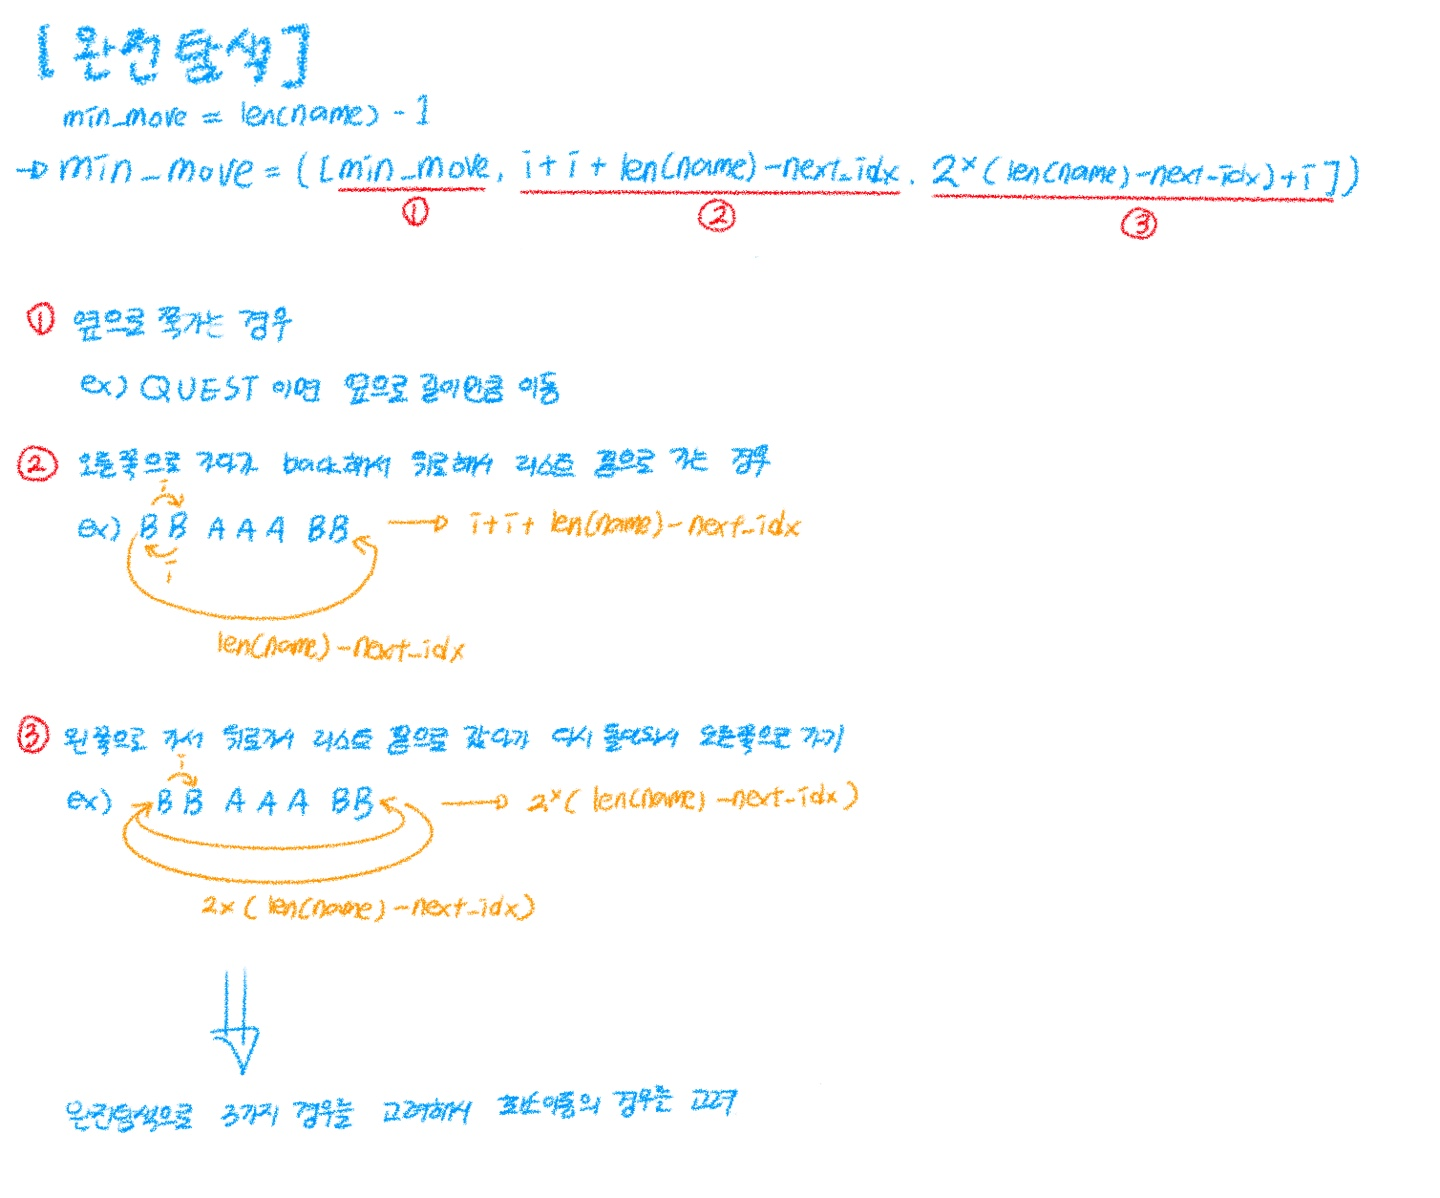 [완전탐색]
min_move = len(name) - 1
→ min_move = ([min_move, i + i + len(name) - next_idx, 2*(len(name) - next_idx) + i])
① ② ③
① 옆으로 쭉가는 경우
ex) QUEST 이면 옆으로 길이만큼 이동
② 오른쪽으로 가다가 back해서 뒤로해서 리스트 끝으로 가는 경우
i
ex) BB AAA BB → i+i+ len(name) - next_idx
i
len(name) - next_idx
③ 왼쪽으로 가서 뒤로가서 리스트 끝으로 갔다가 다시 돌아와서 오른쪽으로 가기
i
ex) BB AAA BB → 2*( len(name) - next_idx )
2x ( len(name) - next_idx)
완전탐색으로 3가지 경우를 고려해서 최소이동의 경우를 고려